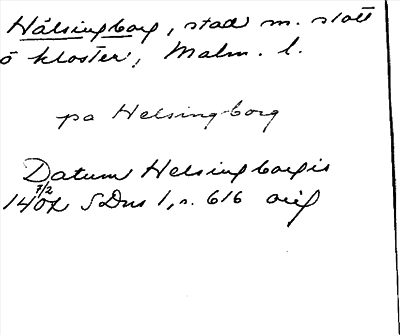 Hälsingborg, stad m. slott
o kloster, Malm. l.
pa Helsingborg
Datum Helsingborgis
7/2
1402 SDns 1, s. 616 orig